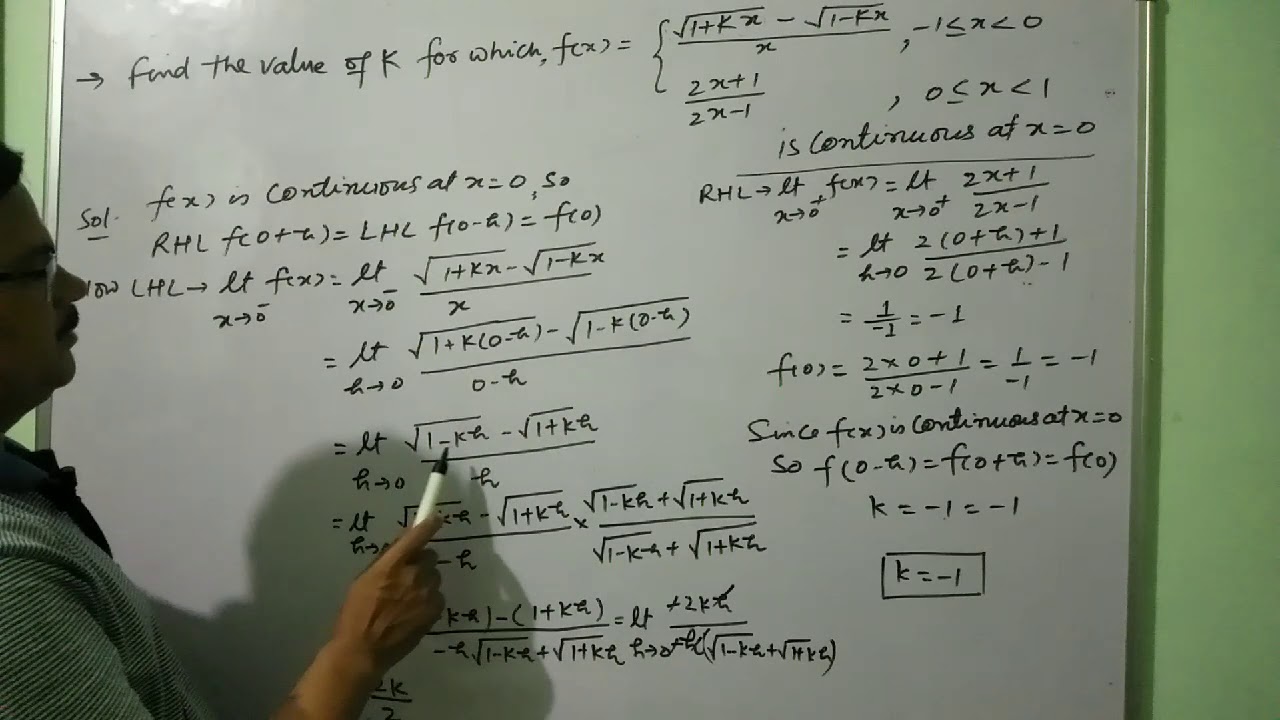 → Find the value of K for which, f(x) = { (√(1+Kx) - √(1-Kx))/x , -1≤x<0
(2x+1)/(2x-1) , 0≤x<1
is continuous at x=0
Sol. f(x) is continuous at x=0, so
RHL f(0+h) = LHL f(0-h) = f(0)
Now LHL → lt x→0⁻ f(x) = lt x→0⁻ (√(1+Kx) - √(1-Kx))/x
= lt h→0 (√(1+K(0-h)) - √(1-K(0-h)))/(0-h)
= lt h→0 (√(1-Kh) - √(1+Kh))/h
= lt (√ - √(1+Kh))/-h × (√(1-Kh) + √(1+Kh))/(√(1-Kh) + √(1+Kh))
Kh) - (1+Kh)/(-h√(1-Kh) + √(1+Kh)) = lt h→0 +2Kh/+h(√(1-Kh) + √(1+Kh))
2K/2
RHL → lt x→0⁺ f(x) = lt x→0⁺ (2x+1)/(2x-1)
= lt h→0 (2(0+h)+1)/(2(0+h)-1)
= 1/-1 = -1
f(0) = (2×0+1)/(2×0-1) = 1/-1 = -1
Since f(x) is continuous at x=0
So f(0-h) = f(0+h) = f(0)
K = -1 = -1
K = -1